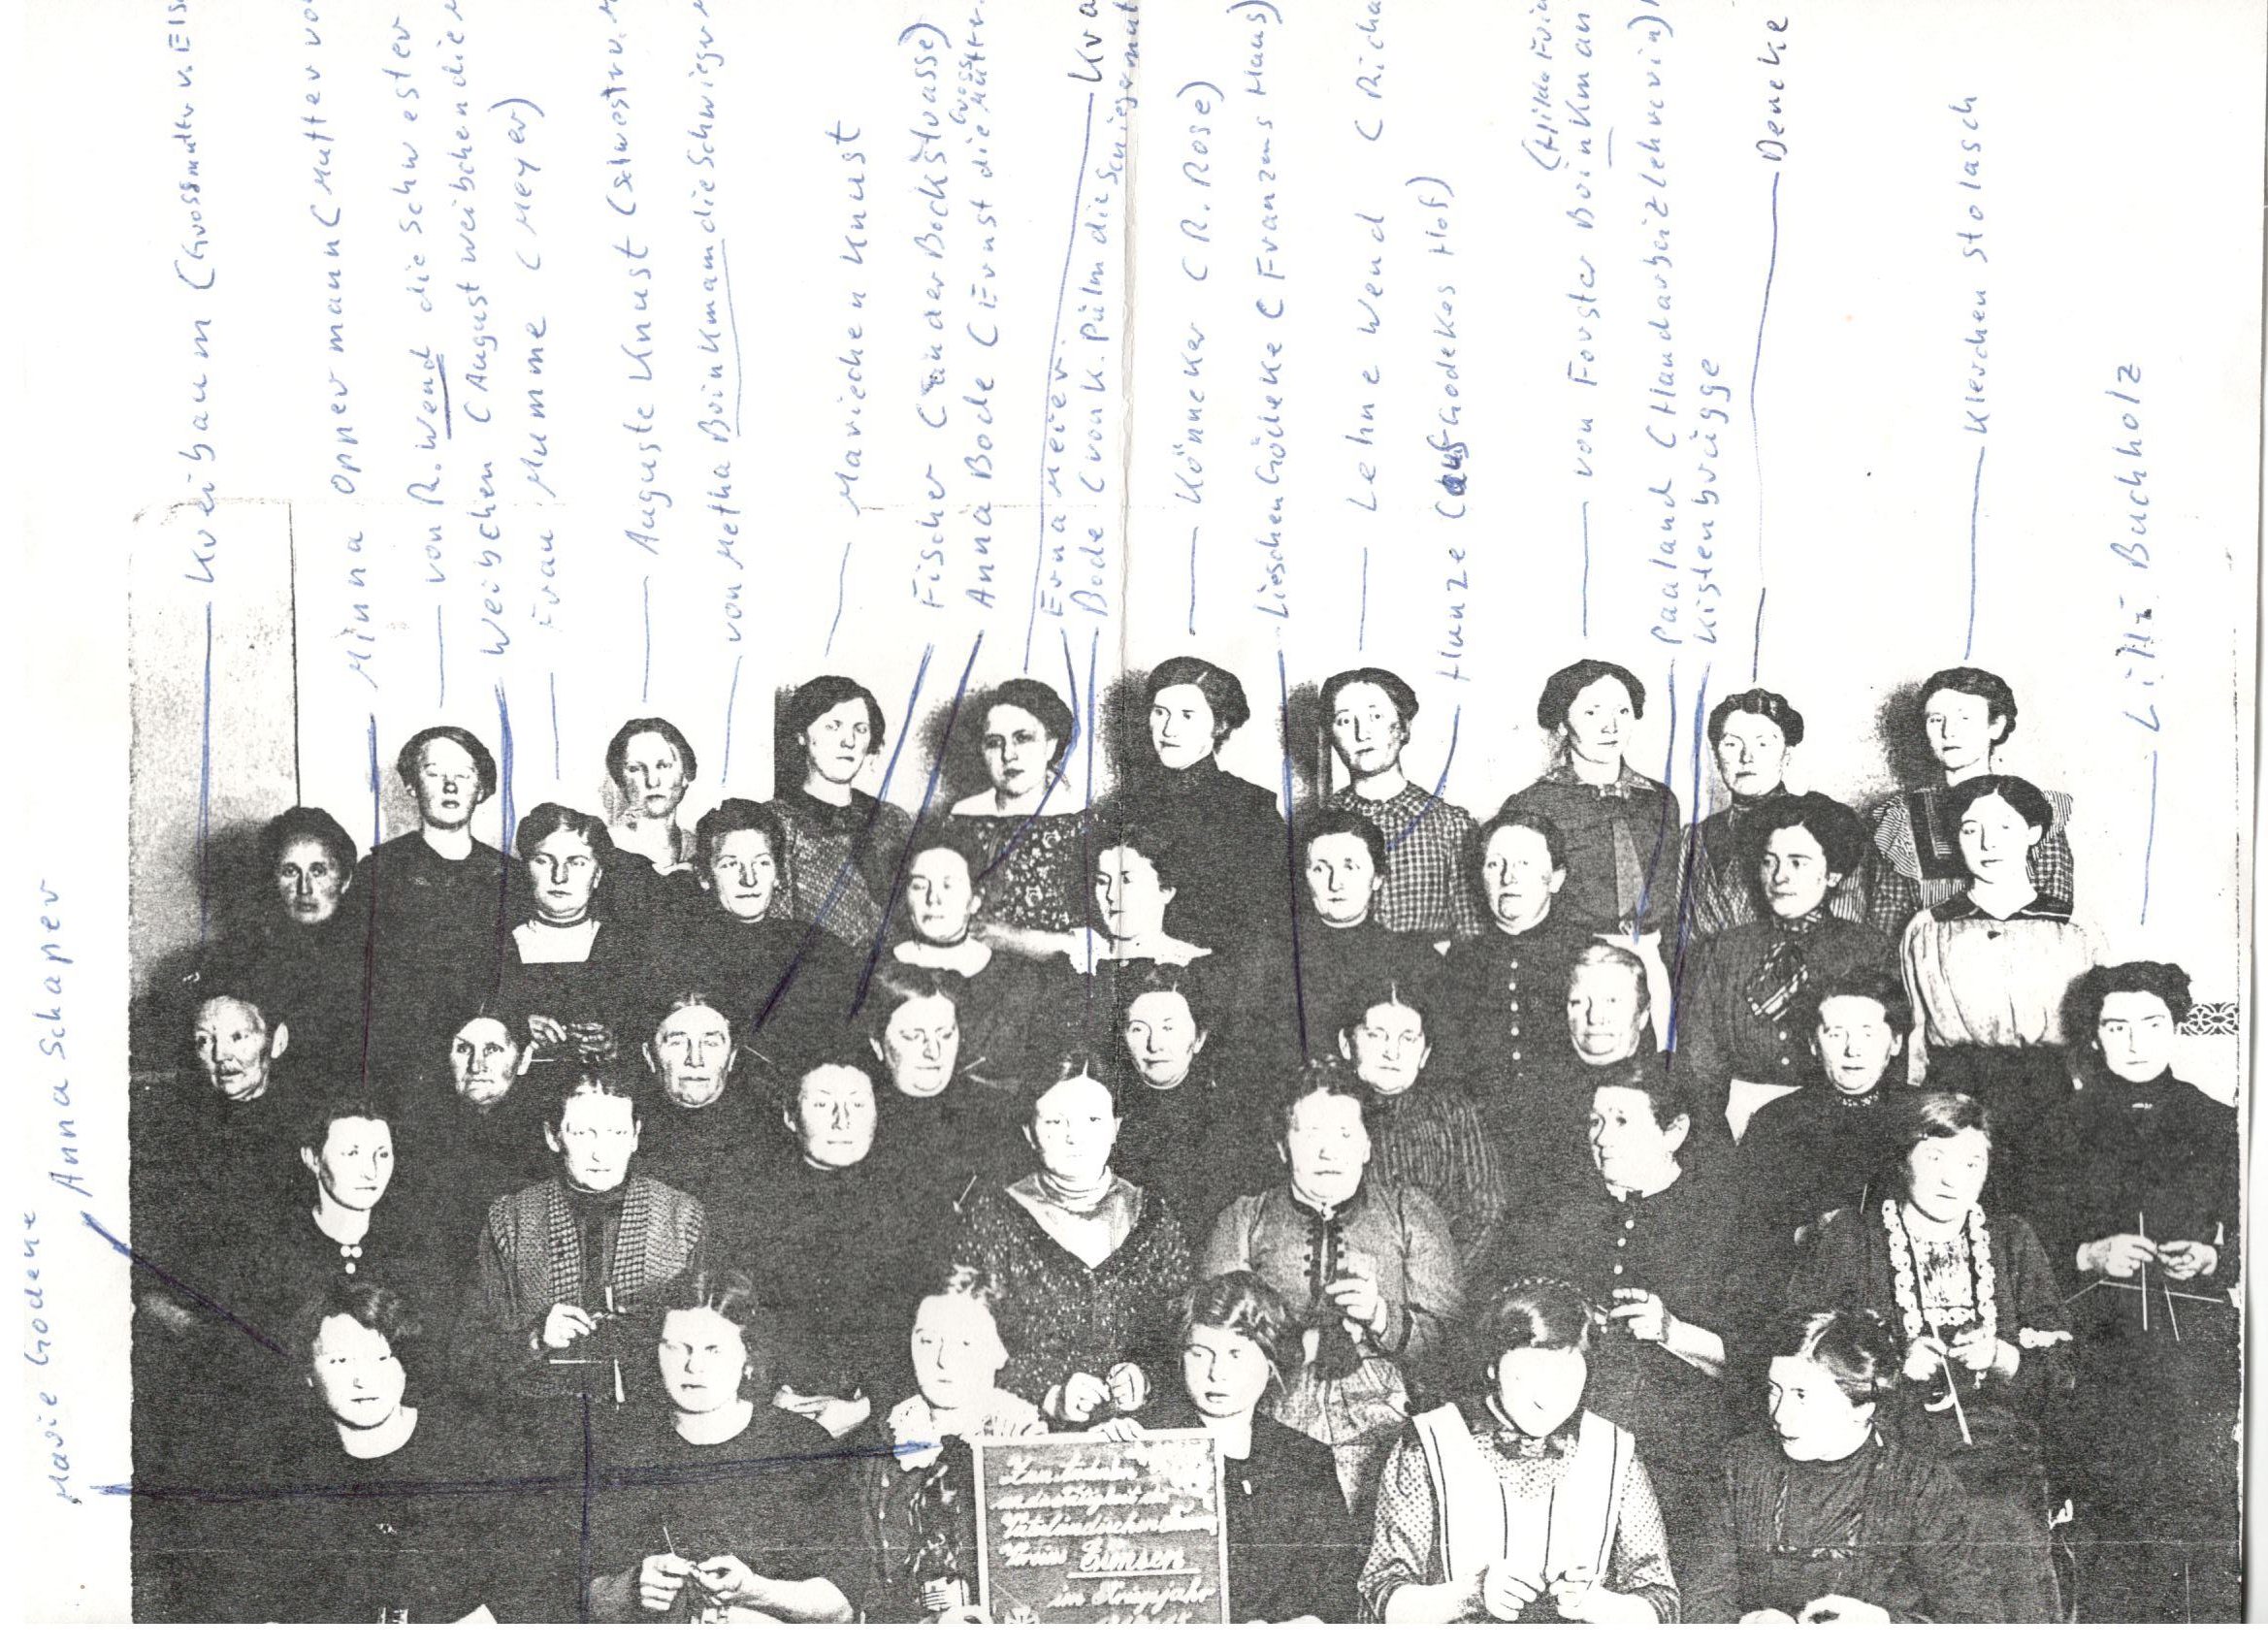 Kreibaum (Grossmuttr v. Els
Minna Oppermann (Mutter vo
von R. Wend die Schwester
Weibchen (August Weibchen die
Frau Mumme (Meyer)
Auguste Knust (Schwestr v.
von Metha Brinkmann die Schwieger
Mariechen Knust
Fischer (in der Bockstrasse)
Anna Bode (Ernst die Gross Muttr.
Kra
Erna Meier.
Bode (von K. Pülm die Schwiegermut
Könneker (R. Rose)
Lieschen Gödeke (Franzens Haus)
Lehne Wend (Richa
Hunze (auf Godekes Hof)
(Hilda
von Forster Brinkman
Paaland (Handarbeizlehrerin)
Kistenbrügge
Deneke
Klerchen Stolasch
Lilli Buchholz
Anna Schaper
Marie Godene
in der Tätigkeit
Vaterländischen
Verein Eimsen
im Kriegsjahr